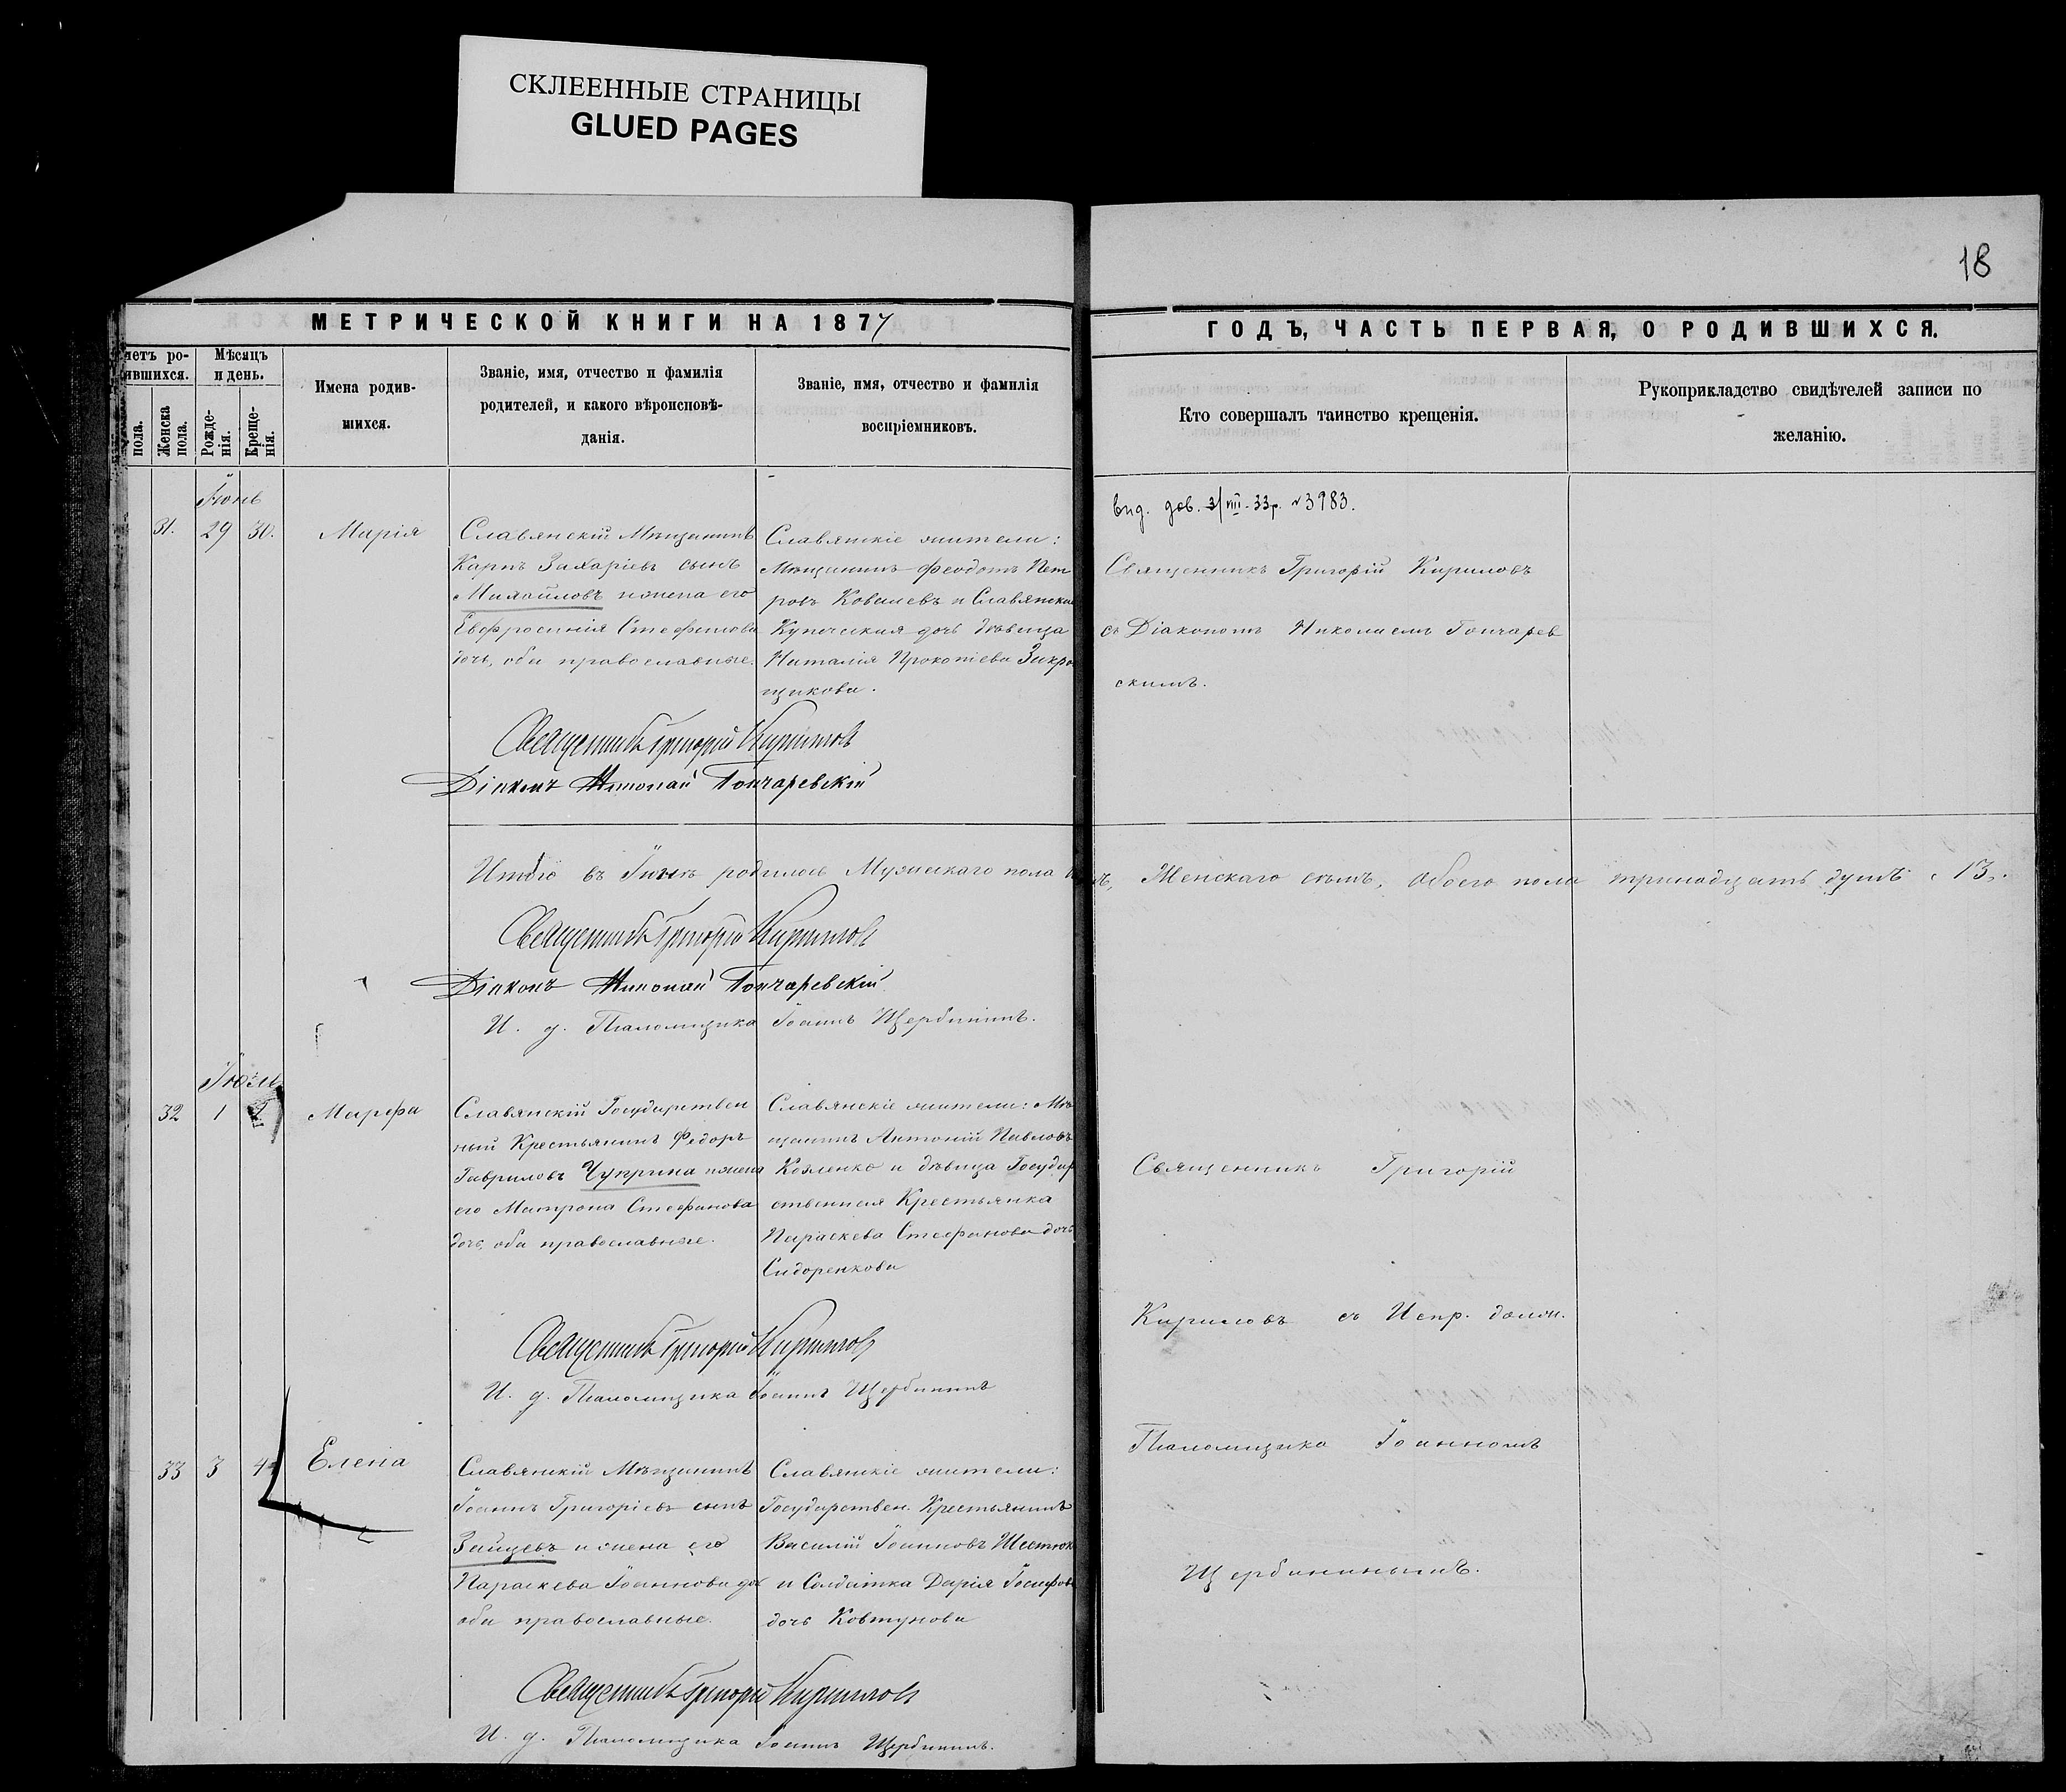 СКЛЕЕННЫЕ СТРАНИЦЫ
GLUED PAGES
18
МЕТРИЧЕСКОЙ КНИГИ НА 1877
ГОДЪ, ЧАСТЬ ПЕРВАЯ, О РОДИВШИХСЯ.
четъ ро-
ившихся.
пола.
Женска
пола.
Мѣсяцъ
и день.
Рожде-
нія.
Креще-
нія.
Имена родив-
шихся.
Званіе, имя, отчество и фамилія
родителей, и какого вѣроисповѣ-
данія.
Званіе, имя, отчество и фамилія
воспріемниковъ.
Кто совершалъ таинство крещенія.
Рукоприкладство свидѣтелей записи по
желанію.
Іюнь
31. 29 30. Марія
Славянскій Мѣщанинъ
Карпъ Захаріевъ сынъ
Михайловъ и жена его
Евфросинія Стефанова
дочь, оба православные.
Славянскіе жители:
Мѣщанинъ Феодотъ Пет
ровъ Ковалевъ и Славянская
Купеческая дочь дѣвица
Наталія Прокопіева Закро
щикова.
вид. дов. 3/VIII-33р. №3983.
Священникъ Григорій Кириловъ
съ Діакономъ Николаемъ Гончарев
скимъ.
Священникъ Григорій Кириловъ
Діаконъ Николай Гончаревскій
Итого въ Іюнѣ родилось Мужескаго пола
Женскаго семь, обоего пола тринадцать душъ. 13.
Священникъ Григорій Кириловъ
Діаконъ Николай Гончаревскій
И. д. Псаломщика Іоаннъ Щербининъ.
Іюль
32 1 2 Марфа
Славянскій Государствен
ный Крестьянинъ Федоръ
Гавриловъ Чуприна и жена
его Матрона Стефанова
дочь, оба православные.
Славянскіе жители: Мѣ
щанинъ Антоній Павловъ
Козленко и дѣвица Государ
ственная Крестьянка
Параскева Стефанова дочь
Сидоренкова
Священникъ Григорій
Кириловъ съ Испр. должн.
Псаломщика Іоанномъ
Щербининымъ.
Священникъ Григорій Кириловъ
И. д. Псаломщика Іоаннъ Щербининъ
33 3 4 Елена
Славянскій Мѣщанинъ
Іоаннъ Григоріевъ сынъ
Зайцевъ и жена его
Параскева Іоаннова доч
оба православные.
Славянскіе жители:
Государствен. Крестьянинъ
Василій Іоанновъ Шестюк
и Солдатка Дарія Іосифов
дочь Ковтунова
Священникъ Григорій Кириловъ
И. д. Псаломщика Іоаннъ Щербининъ.